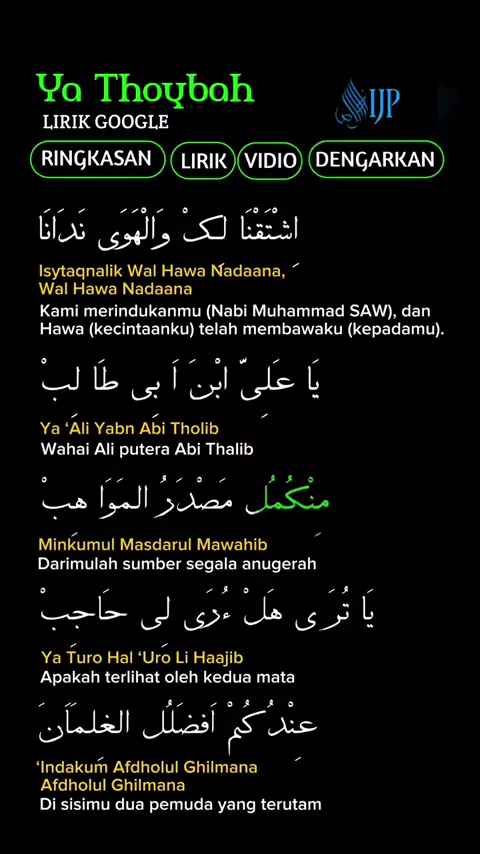 Ya Thoybah
IJP
LIRIK GOOGLE
RINGKASAN LIRIK VIDIO DENGARKAN
اشْتَقْنَا لَكْ وَالْهَوَى نَدَانَا
Isytaqnalik Wal Hawa Nadaana,
Wal Hawa Nadaana
Kami merindukanmu (Nabi Muhammad SAW), dan
Hawa (kecintaanku) telah membawaku (kepadamu).
يَا عَلِىّ ابْنَ اَ بِى طَا لبْ
Ya ‘Ali Yabn Abi Tholib
Wahai Ali putera Abi Thalib
مِنْكُمُل مَصْدَرُ المَوَا هبْ
Minkumul Masdarul Mawahib
Darimulah sumber segala anugerah
يَا تُرَى هَلْ ءُرَى لى حَاجبْ
Ya Turo Hal ‘Uro Li Haajib
Apakah terlihat oleh kedua mata
عِنْدُكُمْ اَفضَلُل الغلمَانَ
‘Indakum Afdholul Ghilmana
Afdholul Ghilmana
Di sisimu dua pemuda yang terutam